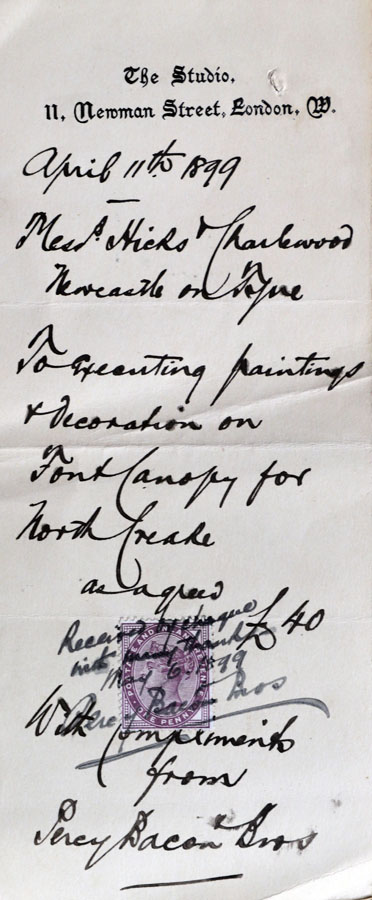 The Studio,
11, Newman Street, London, W.
April 11th 1899
Messrs Hicks & Charlewood
Newcastle on Tyne
To Executing paintings
& decoration on
Font Canopy for
North Creake
as agreed
£ 40
Received by cheque
with many thanks
May 6. 1899
Percy Bacon Bros
POSTAGE AND INLAND REVENUE
ONE PENNY
With Compliments
from
Percy Bacon & Bros